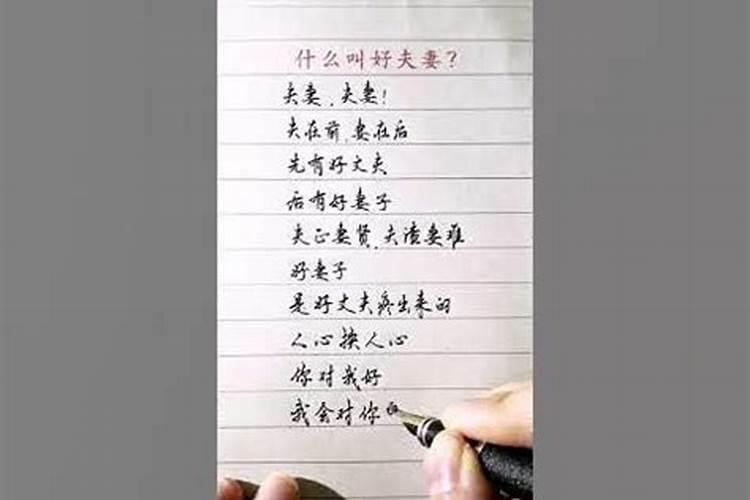 什么叫好夫妻?
夫妻,夫妻!
夫在前,妻在后
先有好丈夫
后有好妻子
夫正妻贤,夫渣妻难
好妻子
是好丈夫疼出来的
人心换人心
你对我好
我会对你